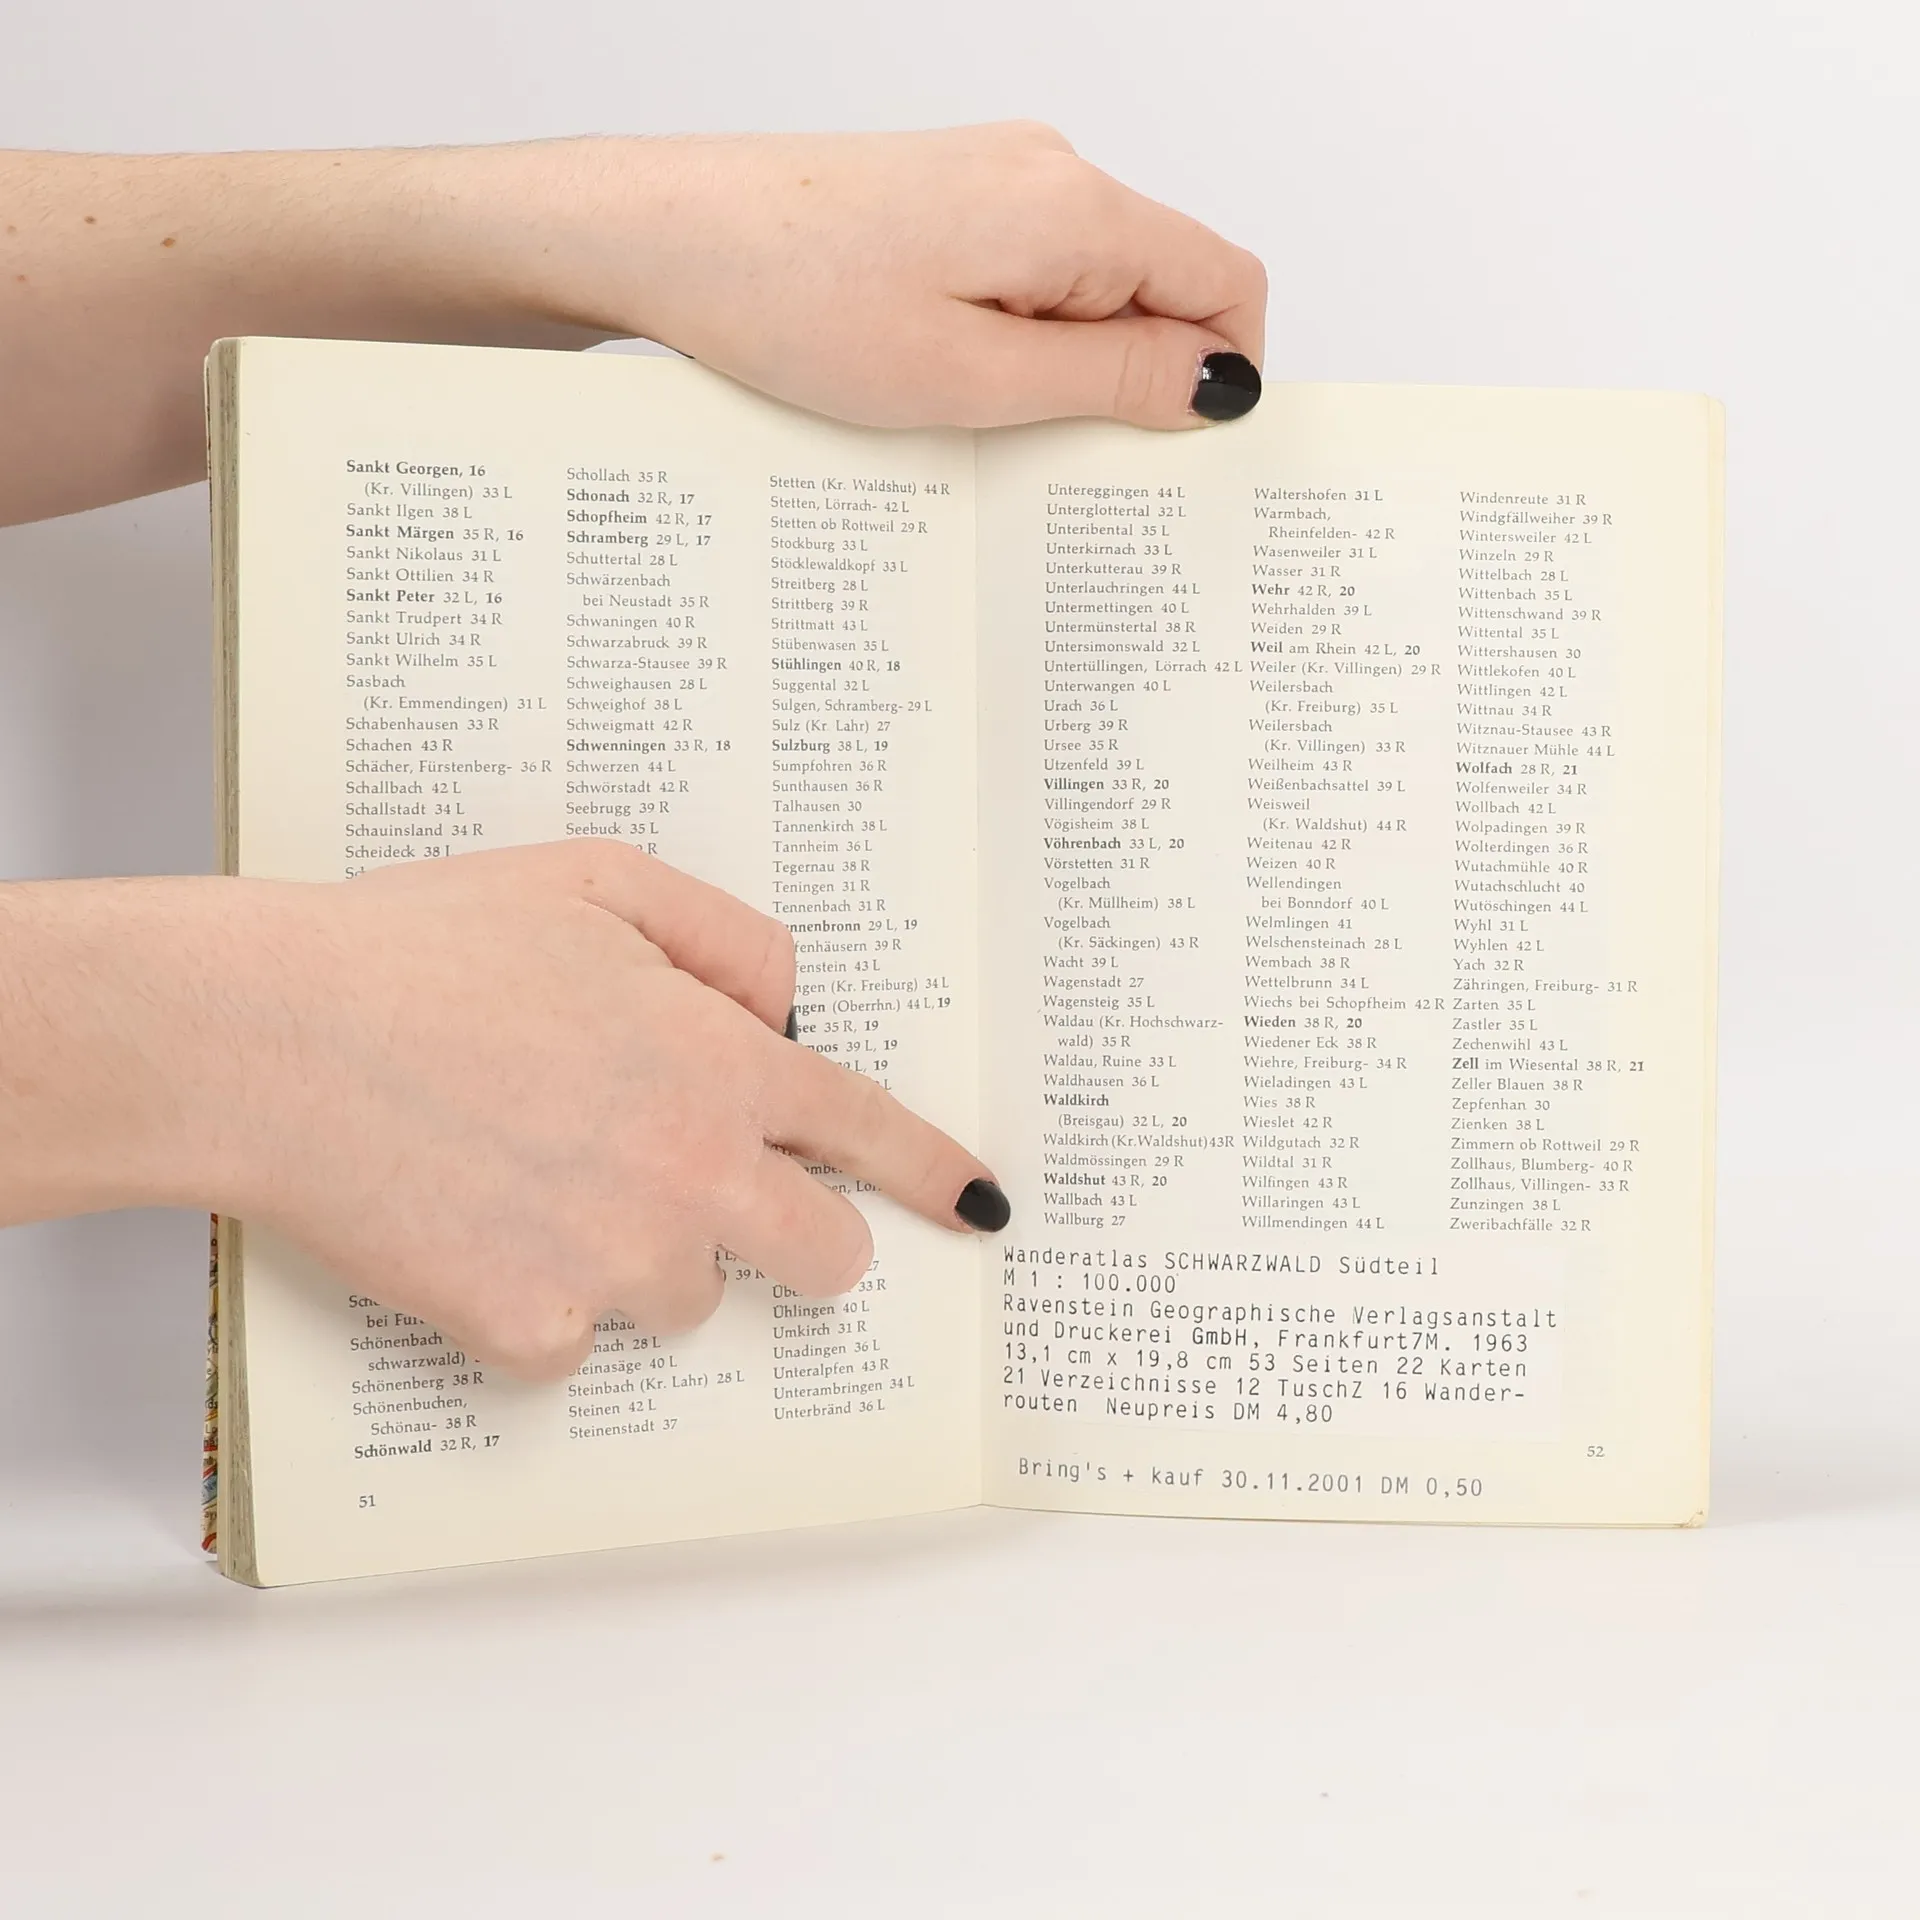 Sankt Georgen, 16
(Kr. Villingen) 33 L
Sankt Ilgen 38 L
Sankt Märgen 35 R, 16
Sankt Nikolaus 31 L
Sankt Ottilien 34 R
Sankt Peter 32 L, 16
Sankt Trudpert 34 R
Sankt Ulrich 34 R
Sankt Wilhelm 35 L
Sasbach
(Kr. Emmendingen) 31 L
Schabenhausen 33 R
Schachen 43 R
Schächer, Fürstenberg- 36 R
Schallbach 42 L
Schallstadt 34 L
Schauinsland 34 R
Scheideck 38 L
Schönenbach
schwarzwald)
Schönenberg 38 R
Schönenbuchen,
Schönau- 38 R
Schönwald 32 R, 17
51
Schollach 35 R
Schonach 32 R, 17
Schopfheim 42 R, 17
Schramberg 29 L, 17
Schuttertal 28 L
Schwärzenbach
bei Neustadt 35 R
Schwaningen 40 R
Schwarzabruck 39 R
Schwarza-Stausee 39 R
Schweighausen 28 L
Schweighof 38 L
Schweigmatt 42 R
Schwenningen 33 R, 18
Schwerzen 44 L
Schwörstadt 42 R
Seebrugg 39 R
Seebuck 35 L
39 R
28 L
Steinasäge 40 L
Steinbach (Kr. Lahr) 28 L
Steinen 42 L
Steinenstadt 37
Stetten (Kr. Waldshut) 44 R
Stetten, Lörrach- 42 L
Stetten ob Rottweil 29 R
Stockburg 33 L
Stöcklewaldkopf 33 L
Streitberg 28 L
Strittberg 39 R
Strittmatt 43 L
Stübenwasen 35 L
Stühlingen 40 R, 18
Suggental 32 L
Sulgen, Schramberg- 29 L
Sulz (Kr. Lahr) 27
Sulzburg 38 L, 19
Sumpfohren 36 R
Sunthausen 36 R
Talhausen 30
Tannenkirch 38 L
Tannheim 36 L
Tegernau 38 R
Teningen 31 R
Tennenbach 31 R
29 L, 19
39 R
43 L
(Kr. Freiburg) 34 L
(Oberrhn.) 44 L, 19
35 R, 19
39 L, 19
L, 19
33 R
Ühlingen 40 L
Umkirch 31 R
Unadingen 36 L
Unteralpfen 43 R
Unterambringen 34 L
Unterbränd 36 L
Untereggingen 44 L
Unterglottertal 32 L
Unteribental 35 L
Unterkirnach 33 L
Unterkutterau 39 R
Unterlauchringen 44 L
Untermettingen 40 L
Untermünstertal 38 R
Untersimonswald 32 L
Untertüllingen, Lörrach 42 L
Unterwangen 40 L
Urach 36 L
Urberg 39 R
Ursee 35 R
Utzenfeld 39 L
Villingen 33 R, 20
Villingendorf 29 R
Vögisheim 38 L
Vöhrenbach 33 L, 20
Vörstetten 31 R
Vogelbach
(Kr. Müllheim) 38 L
Vogelbach
(Kr. Säckingen) 43 R
Wacht 39 L
Wagenstadt 27
Wagensteig 35 L
Waldau (Kr. Hochschwarz-
wald) 35 R
Waldau, Ruine 33 L
Waldhausen 36 L
Waldkirch
(Breisgau) 32 L, 20
Waldkirch (Kr. Waldshut) 43 R
Waldmössingen 29 R
Waldshut 43 R, 20
Wallbach 43 L
Wallburg 27
Waltershofen 31 L
Warmbach,
Rheinfelden- 42 R
Wasenweiler 31 L
Wasser 31 R
Wehr 42 R, 20
Wehrhalden 39 L
Weiden 29 R
Weil am Rhein 42 L, 20
Weiler (Kr. Villingen) 29 R
Weilersbach
(Kr. Freiburg) 35 L
Weilersbach
(Kr. Villingen) 33 R
Weilheim 43 R
Weißenbachsattel 39 L
Weisweil
(Kr. Waldshut) 44 R
Weitenau 42 R
Weizen 40 R
Wellendingen
bei Bonndorf 40 L
Welmlingen 41
Welschensteinach 28 L
Wembach 38 R
Wettelbrunn 34 L
Wiechs bei Schopfheim 42 R
Wieden 38 R, 20
Wiedener Eck 38 R
Wiehre, Freiburg- 34 R
Wieladingen 43 L
Wies 38 R
Wieslet 42 R
Wildgutach 32 R
Wildtal 31 R
Wilfingen 43 R
Willaringen 43 L
Willmendingen 44 L
Windenreute 31 R
Windgfällweiher 39 R
Wintersweiler 42 L
Winzeln 29 R
Wittelbach 28 L
Wittenbach 35 L
Wittenschwand 39 R
Wittental 35 L
Wittershausen 30
Wittlekofen 40 L
Wittlingen 42 L
Wittnau 34 R
Witznau-Stausee 43 R
Witznauer Mühle 44 L
Wolfach 28 R, 21
Wolfenweiler 34 R
Wollbach 42 L
Wolpadingen 39 R
Wolterdingen 36 R
Wutachmühle 40 R
Wutachschlucht 40
Wutöschingen 44 L
Wyhl 31 L
Wyhlen 42 L
Yach 32 R
Zähringen, Freiburg- 31 R
Zarten 35 L
Zastler 35 L
Zechenwihl 43 L
Zell im Wiesental 38 R, 21
Zeller Blauen 38 R
Zepfenhan 30
Zienken 38 L
Zimmern ob Rottweil 29 R
Zollhaus, Blumberg- 40 R
Zollhaus, Villingen- 33 R
Zunzingen 38 L
Zweribachfälle 32 R
Wanderatlas SCHWARZWALD Südteil
M 1 : 100.000
Ravenstein Geographische Verlagsanstalt
und Druckerei GmbH, Frankfurt7M. 1963
13,1 cm x 19,8 cm 53 Seiten 22 Karten
21 Verzeichnisse 12 TuschZ 16 Wander-
routen Neupreis DM 4,80
52
Bring's + kauf 30.11.2001 DM 0,50